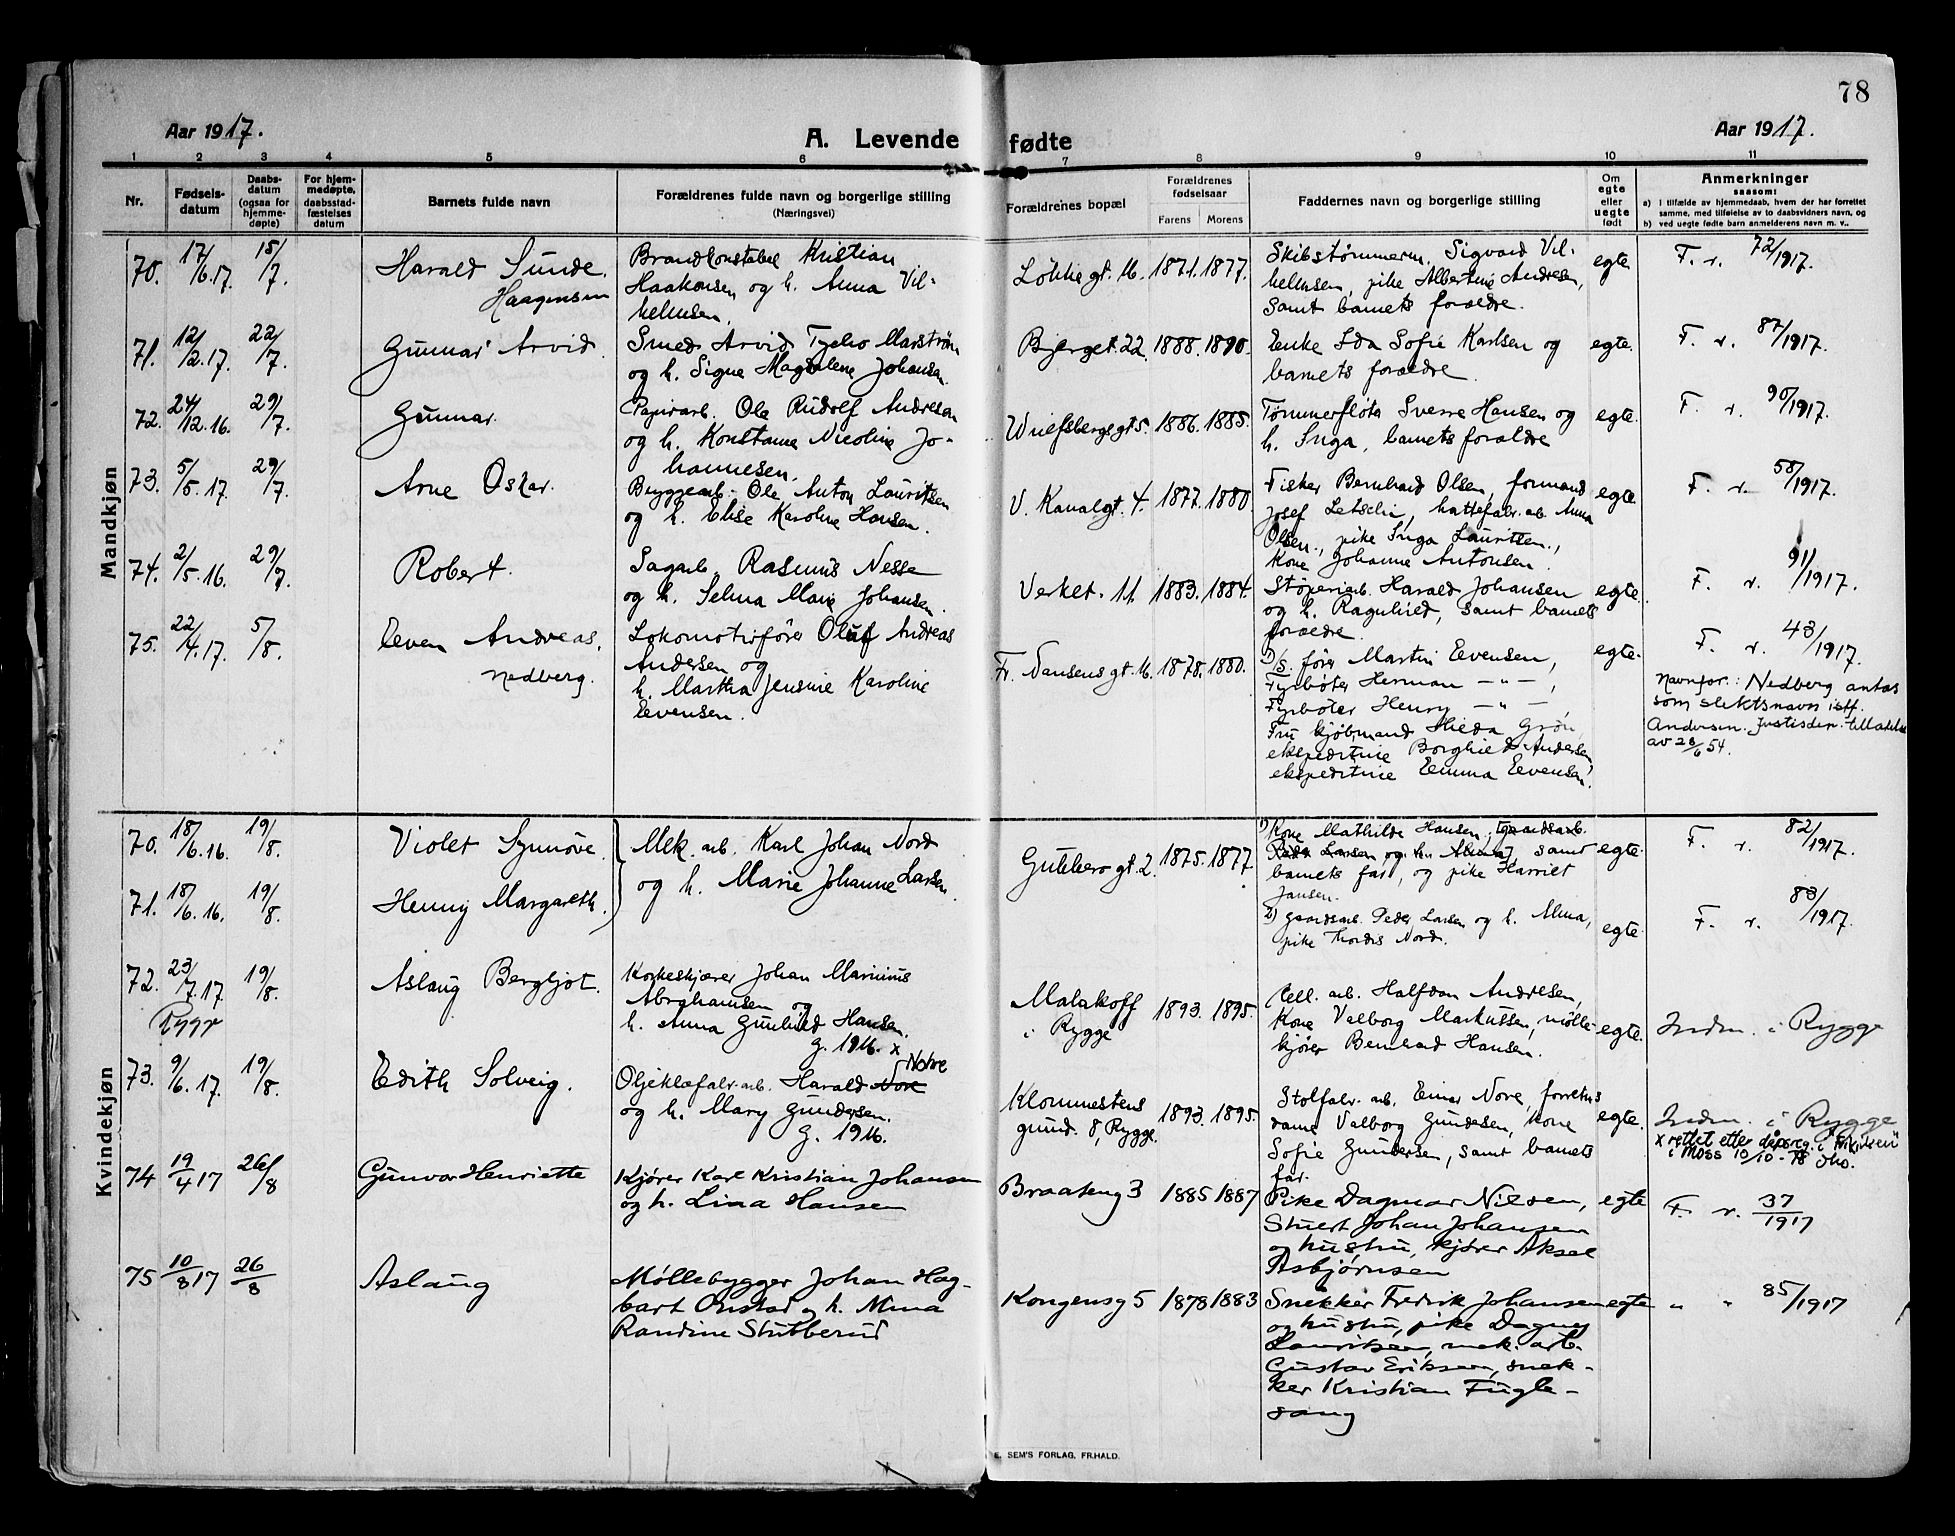 78
Aar 1917.
A. Levende fødte
Aar 1917.
1 2 3 4 5 6 7 8 9 10 11
Nr.
Fødsels-
datum
Daabs-
datum
(ogsaa for
hjemme-
døpte)
For hjem-
medøpte,
daabsstad-
fæstelses
datum
Barnets fulde navn
Forældrenes fulde navn og borgerlige stilling
(Næringsvei)
Forældrenes bopæl
Forældrenes
fødselsaar
Farens Morens
Faddernes navn og borgerlige stilling
Om
egte
eller
uegte
født
Anmerkninger
saasom:
a) I tilfælde av hjemmedaab, hvem der har forrettet
samme, med tilføielse av to daabsvidners navn, og
b) ved uegte fødte barn anmelderens navn m. v..
Mandkjøn
70. 17/6.17. 15/7.
Harald Sunde.
Haagensen
Brandkonstabel Kristian
Haakonsen og h. Anna Vil-
helmsen.
Løkke gt. 16. 1871. 1877.
Skibstømmerm. Sigvard Vil-
helmsen, pike Albertine Andresen,
samt barnets forældre.
egte.
F. r. 72/1917.
71. 12/2.17. 22/7.
Gunnar Arvid.
Smed Arvid Tycho Marstrøm
og h. Signe Magdalene Johansen.
Bjerget. 22. 1888. 1890.
Enke Ida Sofie Karlsen og
barnets forældre.
egte.
F. r. 87/1917.
72. 24/12.16. 29/7.
Gunnar.
Papirarb. Ole Rudolf Andresen
og h. Konstanse Nicoline Jo-
hannesen.
Wulfsbergs gt 5. 1886. 1885.
Tømmerfløter Sverre Hansen og
h. Inga, barnets forældre
egte.
F. r. 90/1917.
73. 5/5.17. 29/7.
Arne Oskar.
Bryggearb. Ole Anton Lauritsen
og h. Elise Karoline Hansen.
V. Kanalgt. 4. 1877. 1880.
Fisker Bernhard Olsen, formand
Josef Letschin, hattefabr. arb. Anna
Olsen., pike Inga Lauritsen.,
Kone Johanne Antonsen.
egte.
F. r. 58/1917.
74. 2/5.16. 29/7.
Robert.
Sagarb. Rasmus Nesse
og h. Selma Marie Johansen.
Verket. 11. 1883. 1884.
Støperiarb. Harald Johansen
og h. Ragnhild, samt barnets
forældre.
egte.
F. r. 91/1917.
75. 22/4.17. 5/8.
Even Andreas.
Nedberg.
Lokomotivfører Oluf Andreas
Andersen og
h. Martha Jensine Karoline
Evensen.
Fr. Nansens gt. 16. 1878. 1880.
D/s. fører Martin Evensen,
Fyrbøter Herman —"—,
Fyrbøter Henry —"—,
Fru kjøbmand Hilda Grøn,
ekspeditrice Borghild Andersen,
ekspeditrice Emma Evensen.
egte.
F. r. 43/1917.
Navnfor.: Nedberg antas
som slektsnavn istf.
Andersen. Justisdep. tillatelse
av 28/6 54.
Kvindekjøn
70. 18/6.16. 19/8.
Violet Synnøve.
Mek. arb. Karl Johan Nord
og h. Marie Johanne Larsen.
Gutzeits gt. 2. 1875. 1877.
1) Kone Mathilde Hansen, [gaardsarb.
Peder Larsen og h. Alma] samt
barnets far, og pike Harriet
Jansen.
egte.
F. r. 82/1917.
71. 18/6.16. 19/8.
Henny Margareth.
2) gaardsarb. Peder Larsen og h. Alma,
pike Thordis Nord.
egte.
F. r. 83/1917.
72. 23/7.17. 19/8.
Rygge
Aslaug Bergljot.
Korkeskjærer Johan Marinius
Abrahamsen og
h. Anna Gunhild Hansen.
g. 1916.
Malakoff
i Rygge
1893. 1895.
Cell. arb. Halfdan Andresen,
Kone Valborg Markussen, mølle-
kjører Bernhard Hansen.
egte.
Indm. i Rygge
73. 9/6.17. 19/8.
Edith Solveig.
x Notre
Oljeklæfabr. arb. Harald Nore
og h. Mary Gundersen.
g. 1916.
Klommestens
grund. 8, Rygge.
1893. 1895.
Stolfabr. arb. Einar Nore, forretnings
dame Valborg Gundersen, kone
Sofie Gundersen, samt barnets
far.
egte.
Indm. i Rygge
x rettet etter dåpsreg. i
i Moss 10/10-78
74 19/4 17 26/8
Gunvor Henriette
Kjører Karl Kristian Johansen
og h. Lina Hansen
Braateng 3 1885 1887
Pike Dagmar Nilsen,
Stuert Johan Johansen
og hustru, kjører Aksel
Asbjørnsen
egte
F. r. 37/1917
75 10/8 17 26/8
Aslaug
Møllebygger Johan Hag-
bart Onstad og h. Mina
Randine Stubberud
Kongensg 5 1878 1883
Snekker Fredrik Johansen
og hustru, pike Dagny
Lauritsen, mek. arb.
Gustav Eriksen, snek-
ker Kristian Fugle-
sang
egte
" " 85/1917
E. SEM'S FORLAG, FR.HALD.